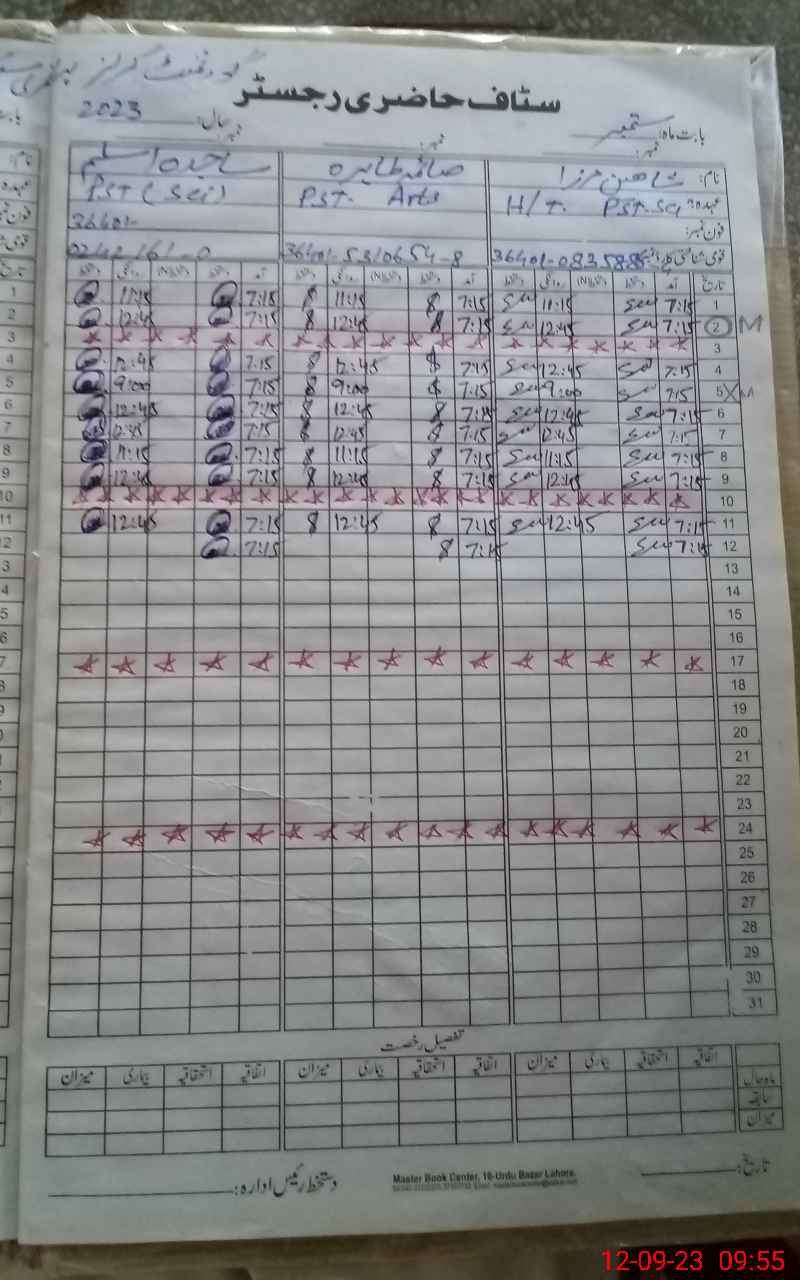 گورنمنٹ گرلز
سٹاف حاضری رجسٹر
بابت ماہ: ستمبر سال: 2023
نمبر: نمبر: نمبر:
نام: شاھین مرزا صائمہ طاہرہ ساجدہ اسلم
عہدہ: H/T. PST.Sci PST. Arts PST (Sci)
فون نمبر: 36401-
36401-5310654-8 0242161-0
تاریخ آمد دستخط روانگی دستخط آمد دستخط روانگی دستخط آمد دستخط روانگی دستخط
1 7:15 11:15 7:15 11:15 7:15 11:15
M 2 7:15 12:45 7:15 12:45 7:15 12:45
3
4 7:15 12:45 7:15 12:45 7:15 12:45
M X 5 7:15 9:00 7:15 9:00 7:15 9:00
6 7:15 12:45 7:15 12:45 7:15 12:45
7 7:15 12:45 7:15 12:45 7:15 12:45
8 7:15 11:15 7:15 11:15 7:15 11:15
9 7:15 12:45 7:15 12:45 7:15 12:45
10
11 7:15 12:45 7:15 12:45 7:15 12:45
12 7:15 7:15 7:15
13
14
15
16
17
18
19
20
21
22
23
24
25
26
27
28
29
30
31
تفصیل رخصت
اتفاقیہ استحقاقیہ بیماری میزان اتفاقیہ استحقاقیہ بیماری میزان اتفاقیہ استحقاقیہ بیماری میزان
ماہ حال
سابقہ
میزان
تاریخ: دستخط رئیس ادارہ:
Master Book Center, 16-Urdu Bazar Lahore.
12-09-23 09:55